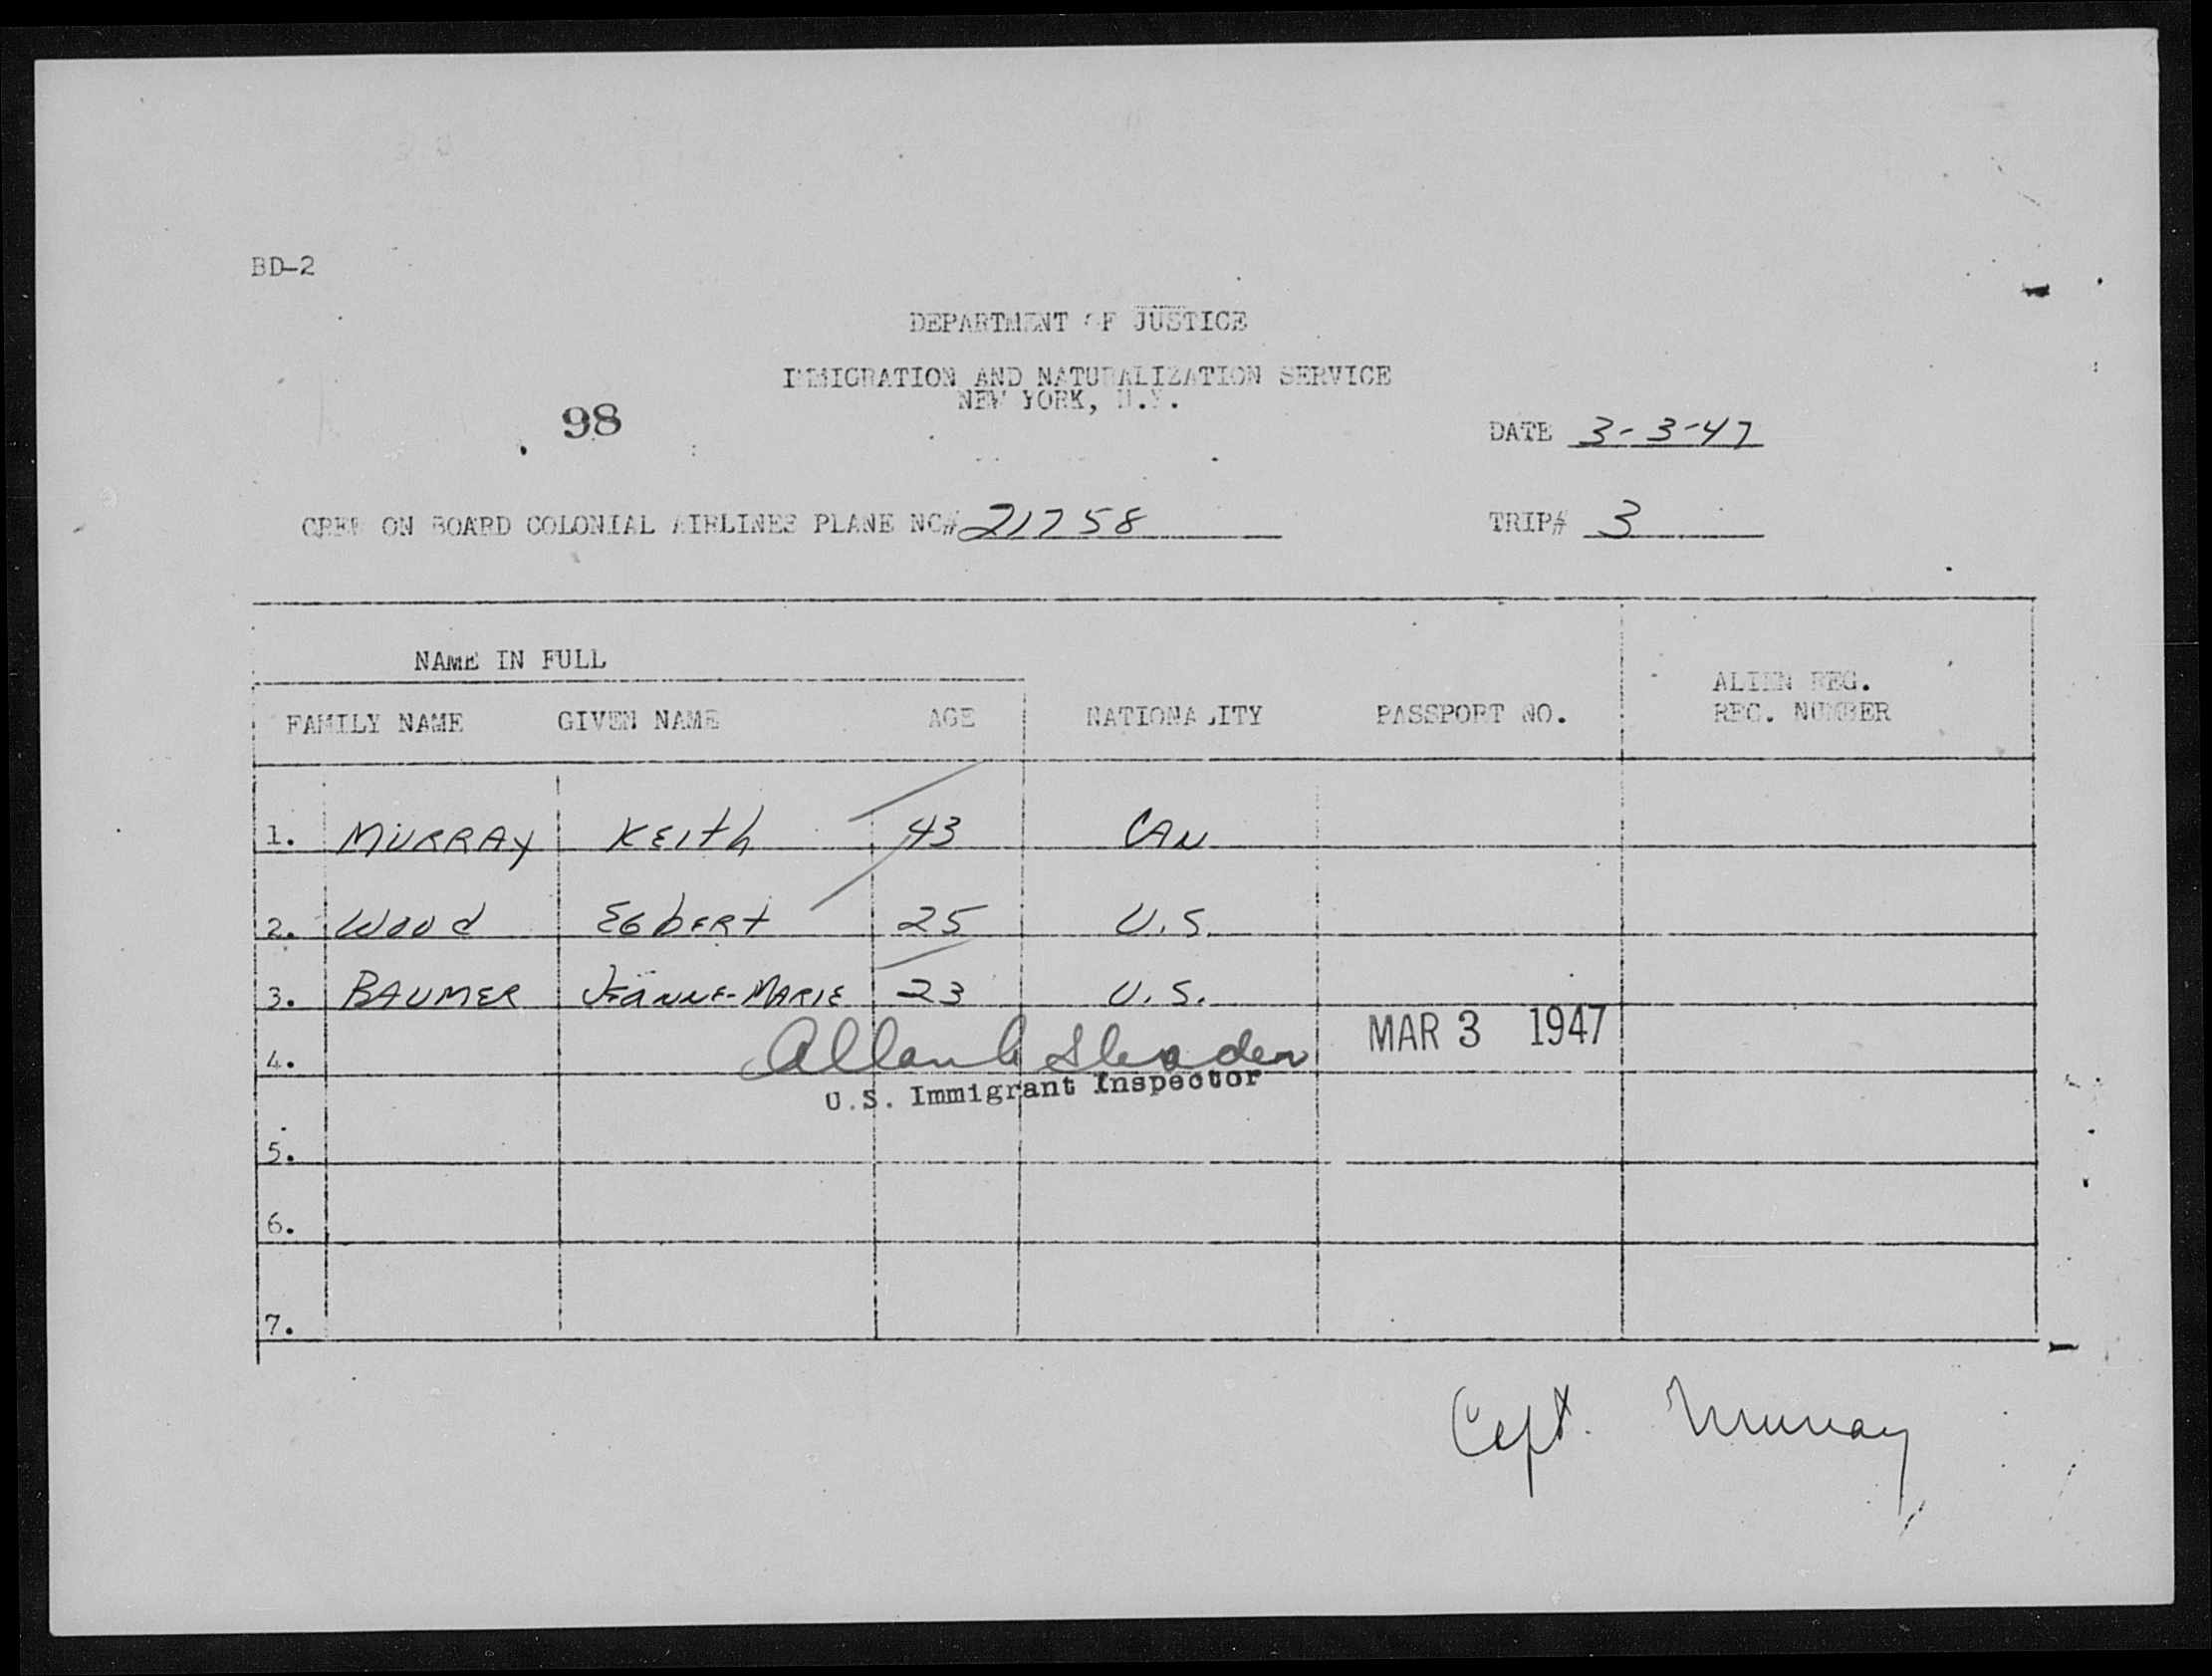 BD-2
DEPARTMENT OF JUSTICE
IMMIGRATION AND NATURALIZATION SERVICE
NEW YORK, N.Y.
98
DATE 3-3-47
CREW ON BOARD COLONIAL AIRLINES PLANE NC# 21758
TRIP# 3
NAME IN FULL
ALIEN REG.
FAMILY NAME GIVEN NAME AGE NATIONALITY PASSPORT NO. REC. NUMBER
1. MURRAY KEITH 43 CAN
2. WOOD EGBERT 25 U.S.
3. BAUMER JEANNE-MARIE 23 U.S.
MAR 3 1947
4. Allan
U.S. Immigrant Inspector
5.
6.
7.
Capt. Murray